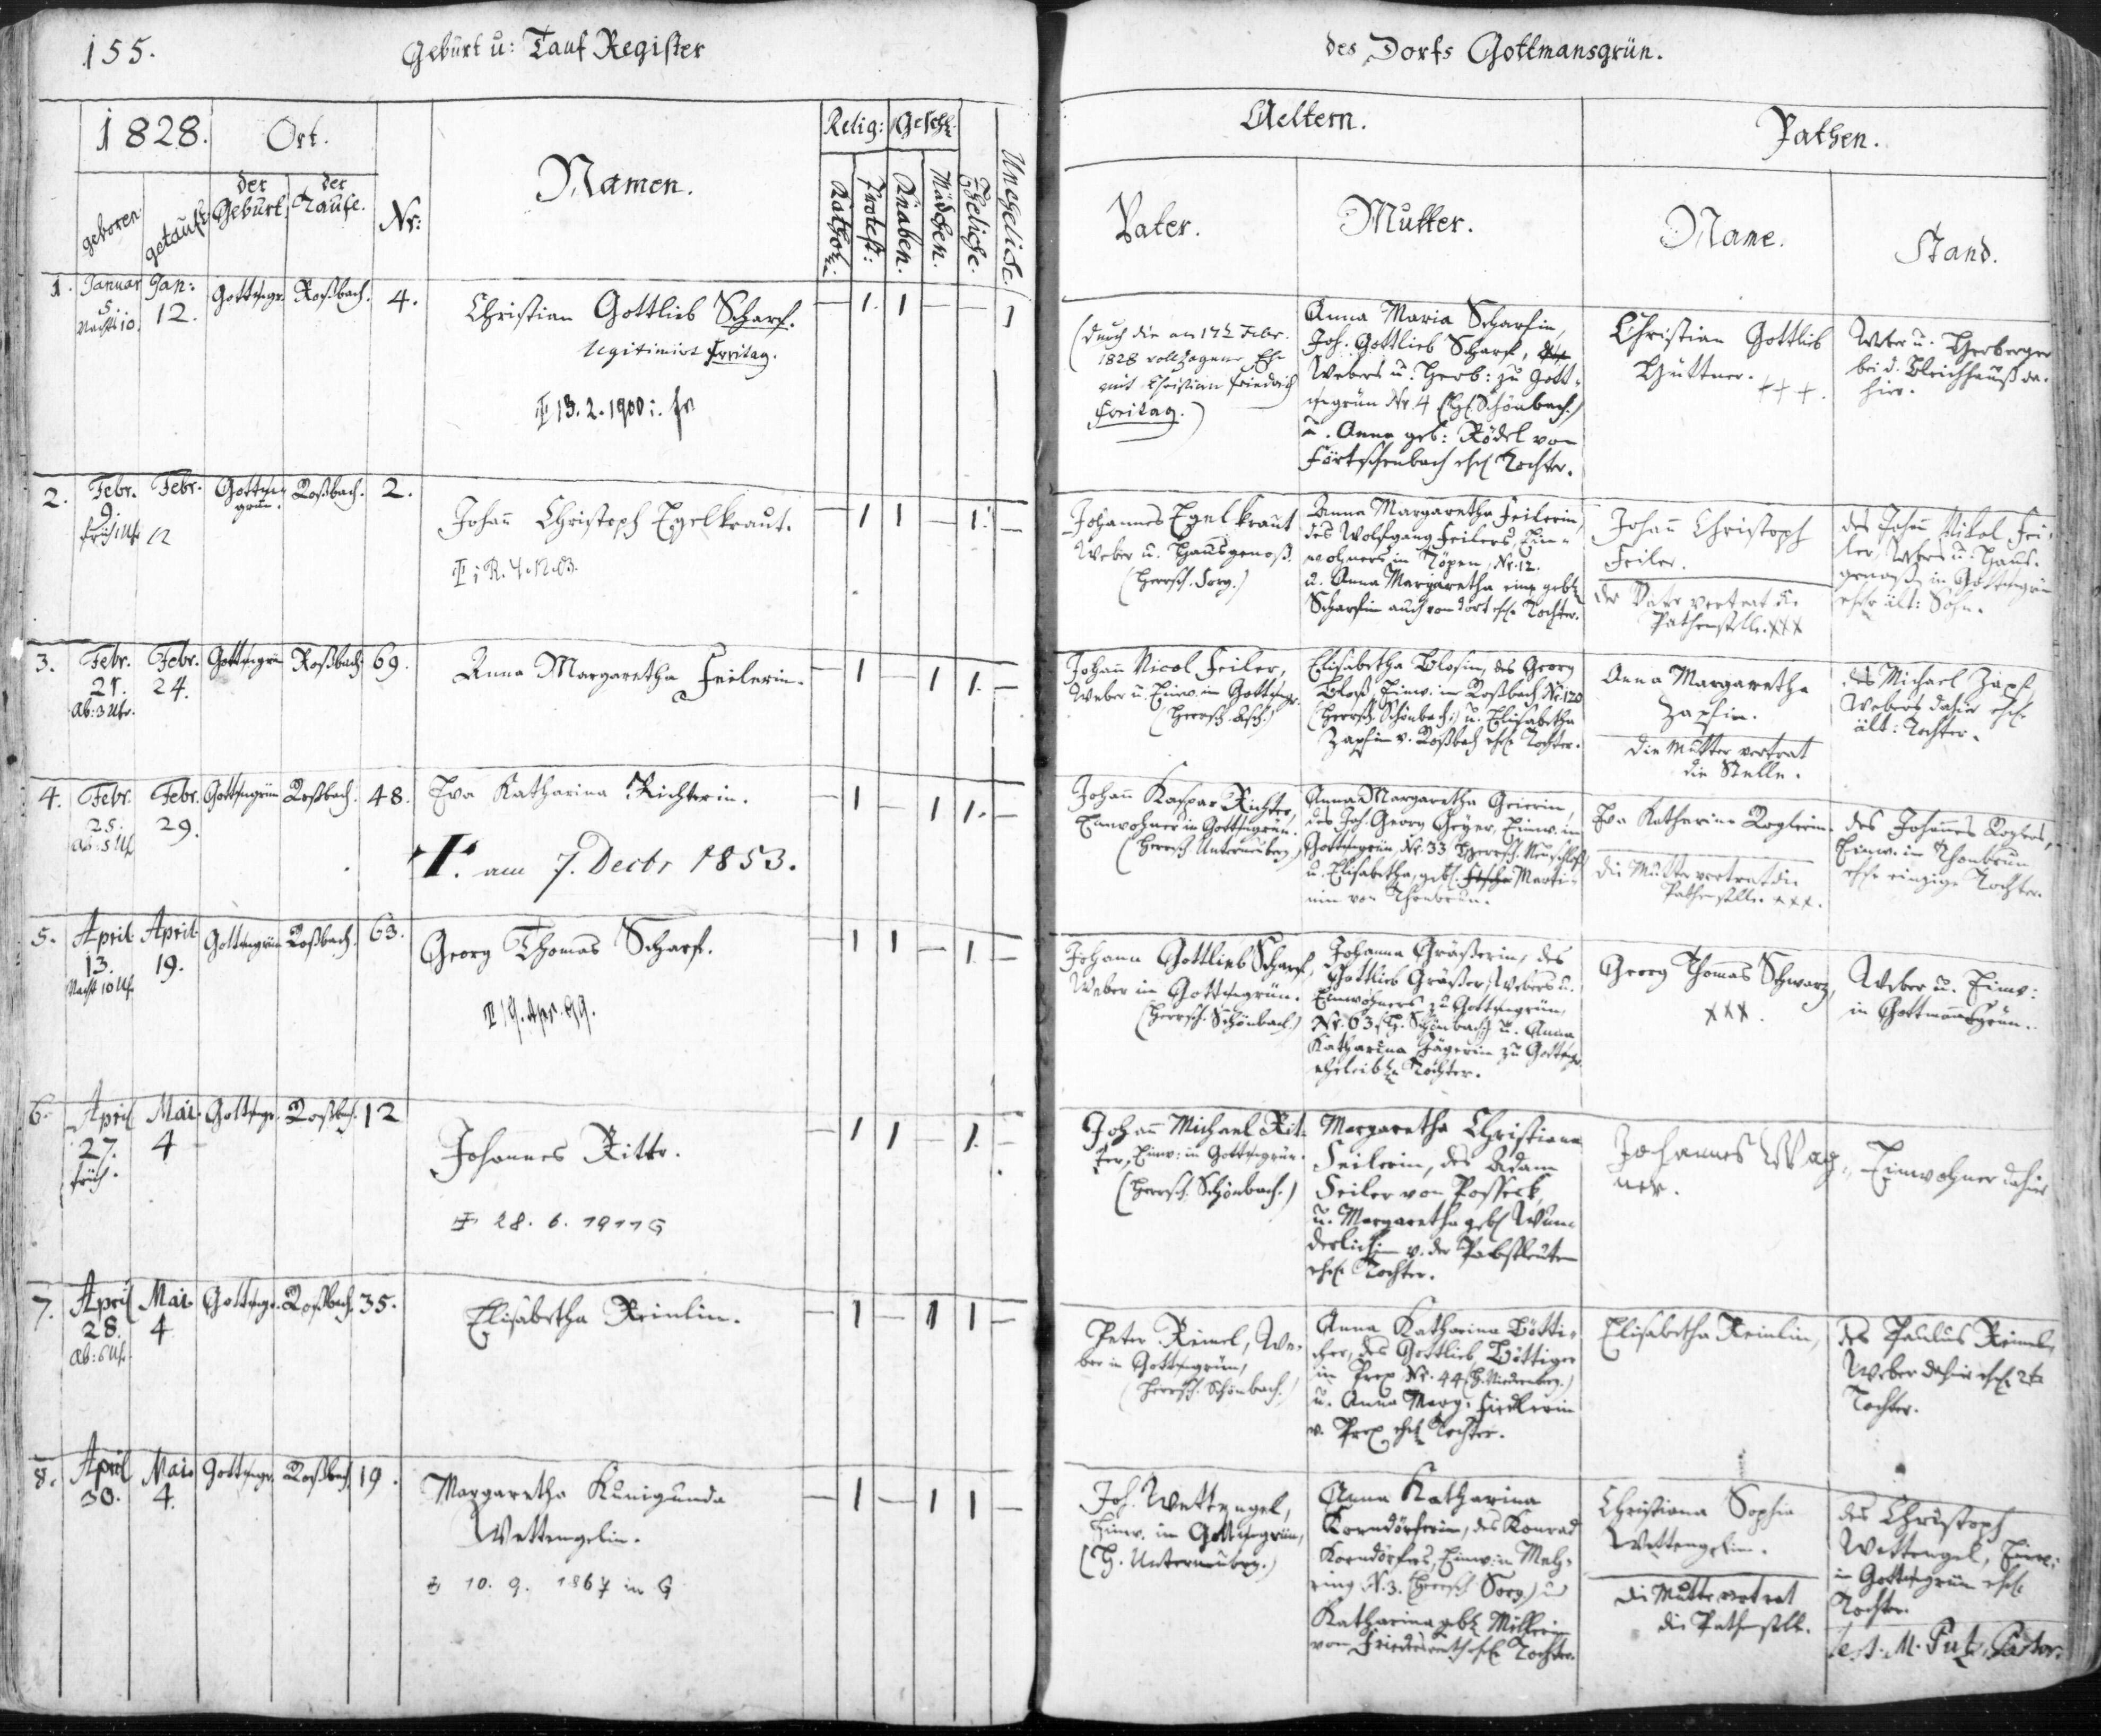 155.
Geburt u: Tauf Register
des Dorfs Gottmansgrün.
1828.
Ort.
geboren
getauft
der Geburt.
der Taufe.
Nr:
Namen.
Relig:
Geschl:
Kathol:
Protest:
Knaben.
Mädchen.
Eheliche.
Unehelich.
Aeltern.
Pathen.
Vater.
Mutter.
Name.
Stand.
1. Januar Jan: Gottmgr. Roßbach. 4.
5. 12.
Nachts 10.
Christian Gottlieb Scharf.
legitimirt Freitag.
13. 2. 1900
— 1. 1 — — 1
(durch die am 17t Febr.
1828 vollzogene Ehe
mit Christian Friedrich
Freitag.)
Anna Maria Scharfin,
Joh. Gottlieb Scharf,
Webers u. Herb: zu Gott-
mgrün Nr. 4 Schönbach)
u. Anna geb: Rödel von
Tochter.
Christian Gottlieb
Hüttner. +++.
Weber u. Herberger
bei d. Bleichhauß da-
hier.
2. Febr. Febr. Gottmgrün. Roßbach. 2.
9. 12
früh 1 Uhr
Johañ Christoph Egelkraut.
— 1 1 — 1. —
Johannes Egelkraut
Weber u. Hausgenoß.
(Herrsch. Sorg.)
Anna Margaretha Feilerin,
des Wolfgang Feilers, Ein-
wohners in Töpen, Nr. 12.
u. Anna Margaretha eine geb.
Scharfin auch von dort ehl. Tochter.
Johañ Christoph
Feiler.
Der Vater vertrat die
Pathenstelle. xxx
des Johañ Nikol Fei-
ler, Webers u. Haus-
genoß in Gottmgrün
ehl. ält: Sohn.
3. Febr. Febr. Gottmgrün Roßbach 69.
21. 24.
Ab: 3 Uhr.
Anna Margaretha Feilerin.
— 1 — 1 1. —
Johañ Nicol Feiler,
Weber u. Einw. in Gottmgr.
(Herrsch. Asch.)
Elisabetha Blosin, des Georg
Bloß, Einw. in Roßbach Nr. 120
(Herrsch. Schönbach) u. Elisabetha
Zapfin v. Roßbach ehl. Tochter.
Anna Margaretha
Zapfin.
Die Mutter vertrat
die Stelle.
des Michael Zapf,
Webers dahier ehl.
ält: Tochter.
4. Febr. Febr. Gottmgrün Roßbach. 48.
25. 29.
Ab: 5 Uhr
Eva Katharina Richterin.
am 7. Decbr 1853.
— 1 — 1 1. —
Johañ Kaspar Richter,
Einwohner in Gottmgrün.
(Herrsch. Unterneuberg)
Anna Margaretha Geierin,
des Joh. Georg Geyer, Einw. in
Gottmgrün, Nr. 33 Herrsch. Neuschloß
u. Elisabetha, geb. Marti-
nin von Thonbrun.
Eva Katharina Roglerin.
Die Mutter vertrat die
Pathenstelle. xxx.
des Johannes Roglers,
Einw. in Thonbrun
ehl. einzige Tochter.
5. April April Gottmgrün Roßbach. 63.
13. 19.
Nachts 10 Uhr.
Georg Thomas Scharf.
19. Apr. 99.
— 1 1 — 1. —
Johann Gottlieb Scharf,
Weber in Gottmgrün.
(Herrsch. Schönbach.)
Johanna Gräßerin, des
Gottlieb Gräßer, Webers u.
Einwohners zu Gottmgrün,
Nr. 63 H. Schönbach u. Anna
Katharina Jägerin zu Gottmgr.
eheleibl. Tochter.
Georg Thomas Schwarz,
xxx.
Weber u. Einw:
in Gottmansgrün.
6. April Mai. Gottmgr. Roßbach. 12
27. 4
früh.
Johannes Ritter.
28. 6. 1911 G
— 1 1 — 1. —
Johañ Michael Rit-
ter, Einw: in Gottmgrün.
(Herrsch. Schönbach.)
Margaretha Christiana
Feilerin, des Adam
Feiler von Posseck,
u. Margaretha geb. Wun-
derlichin v. der
ehl. Tochter.
Johannes Wag-
ner.
Einwohner dahier
7. April Mai. Gottmgr. Roßbach. 35.
28. 4
Ab: 6 Uhr.
Elisabetha Reinlin.
— 1 — 1 1 —
Peter Reinel, We-
ber in Gottmgrün,
(Herrsch. Schönbach.)
Anna Katharina Bötti-
cher, des Gottlieb Böttiger
in Prex Nr. 44
u. Anna Marg. Fiedlerin
v. Prex ehl. Tochter.
Elisabetha Reinlin,
des Paulus Reinel,
Weber dahier ehl. 2te
Tochter.
8. April Mai. Gottmgr. Roßbach. 19.
30. 4.
Margaretha Kunigunda
Wettengelin.
10. 9. 1867 in G
— 1 — 1 1 —
Joh. Wettengel,
Einw. in Gottmgrün,
(H. Unterneuberg.)
Anna Katharina
Korndörferin, des Konrad
Korndörfers, Einw. in Meh-
ring N. 3. (Herrsch. Sorg) u
Katharina geb. Müllerin
von Friedersreuth ehl. Tochter.
Christiana Sophia
Wettengelin.
Die Mutter vertrat
die Pathenstelle.
des Christoph
Wettengel, Einw:
in Gottmgrün ehl.
Tochter.
test. M. Putz, Pastor.